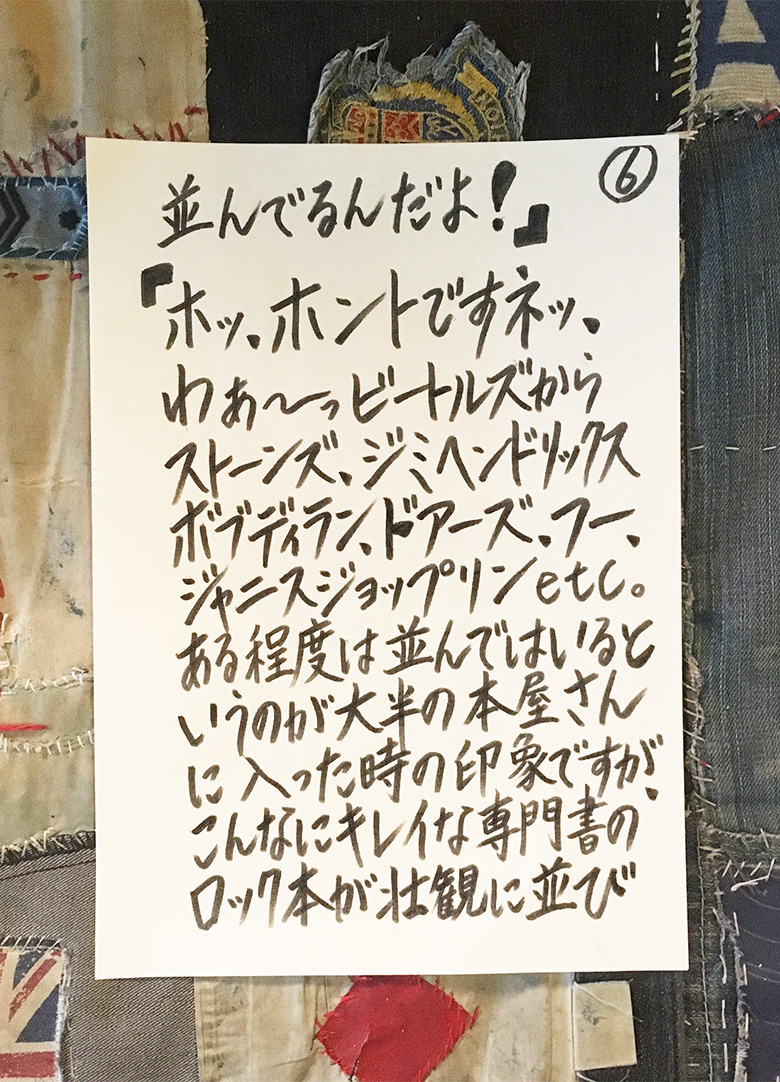 ⑥
並んでるんだよ!』
『ホッ、ホントですネッ、
わぁ〜っビートルズから
ストーンズ、ジミヘンドリックス
ボブディラン、ドアーズ、フー、
ジャニスジョップリンetc。
ある程度は並んではいると
いうのが大半の本屋さん
に入った時の印象ですが、
こんなにキレイな専門書の
ロック本が壮観に並び